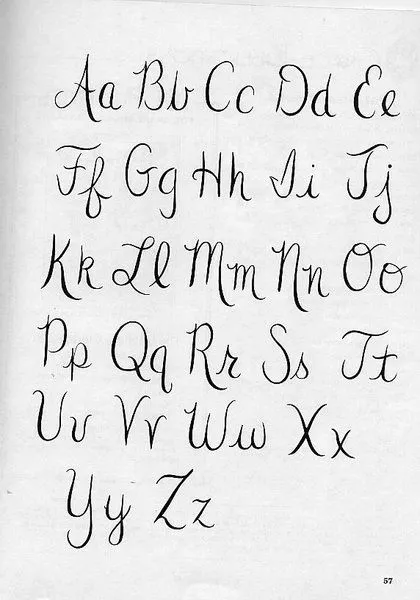 Aa Bb Cc Dd Ee
Ff Gg Hh Ii Jj
Kk Ll Mm Nn Oo
Pp Qq Rr Ss Tt
Uu Vv Ww Xx
Yy Zz
57